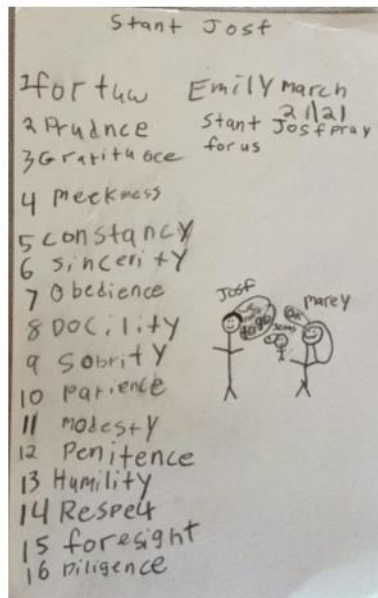 Stant Josf
Emily March
21/21
Stant Josf pray
for us
1 fortuw
2 Prudnce
3 Gratituoce
4 meekness
5 constancy
6 sincerity
7 Obedience
8 DOCility
9 Sobrity
10 Patience
11 modesty
12 Penitence
13 Humility
14 Respelt
15 foresight
16 Diligence
Josf
Marey